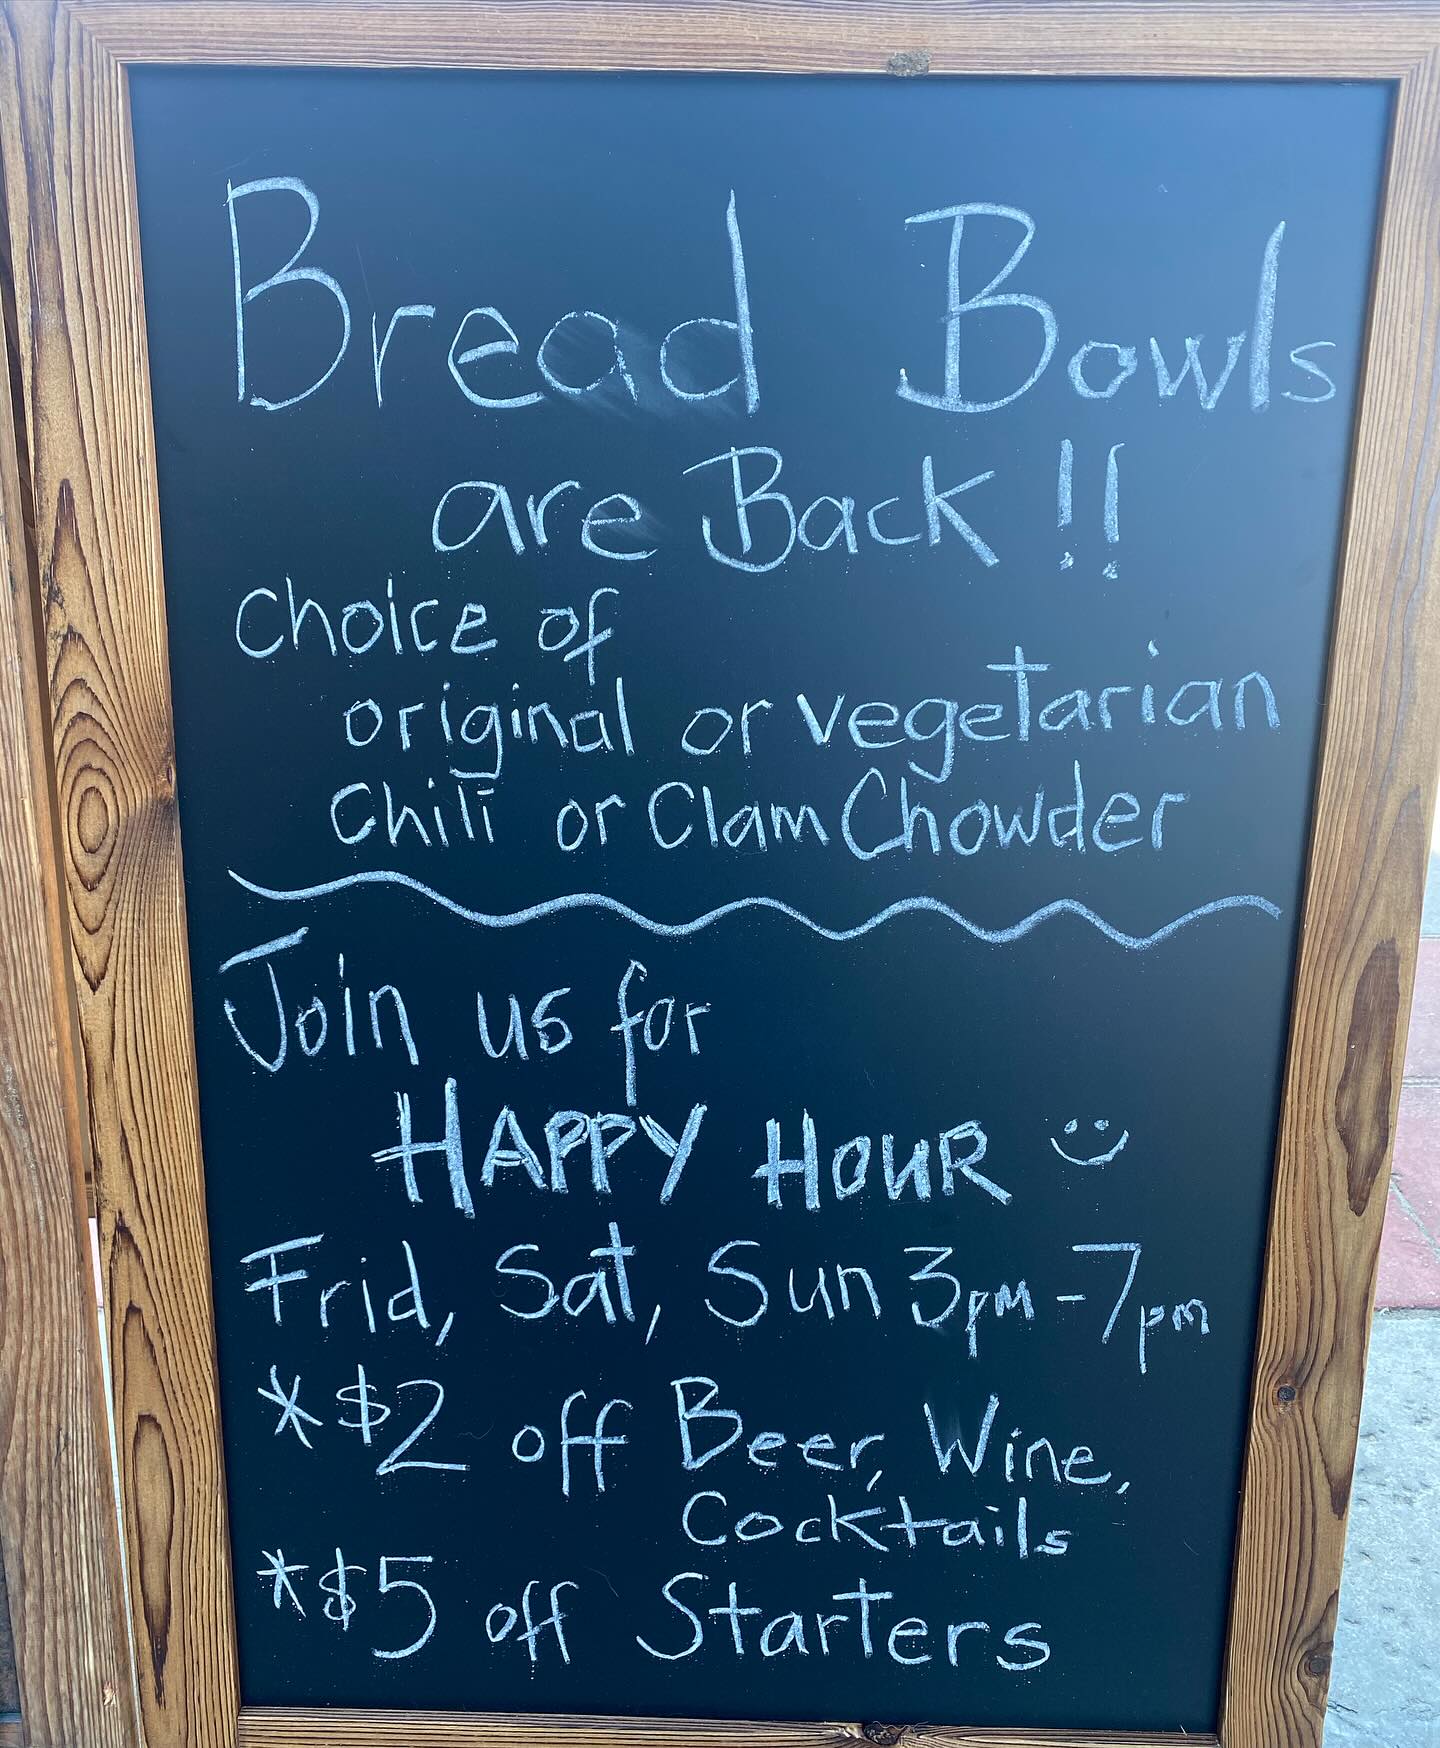 Bread Bowls
are Back!!
Choice of
original or vegetarian
Chili or Clam Chowder
Join us for
HAPPY HOUR
Frid, Sat, Sun 3pm-7pm
*$2 off Beer, Wine,
Cocktails
*$5 off Starters